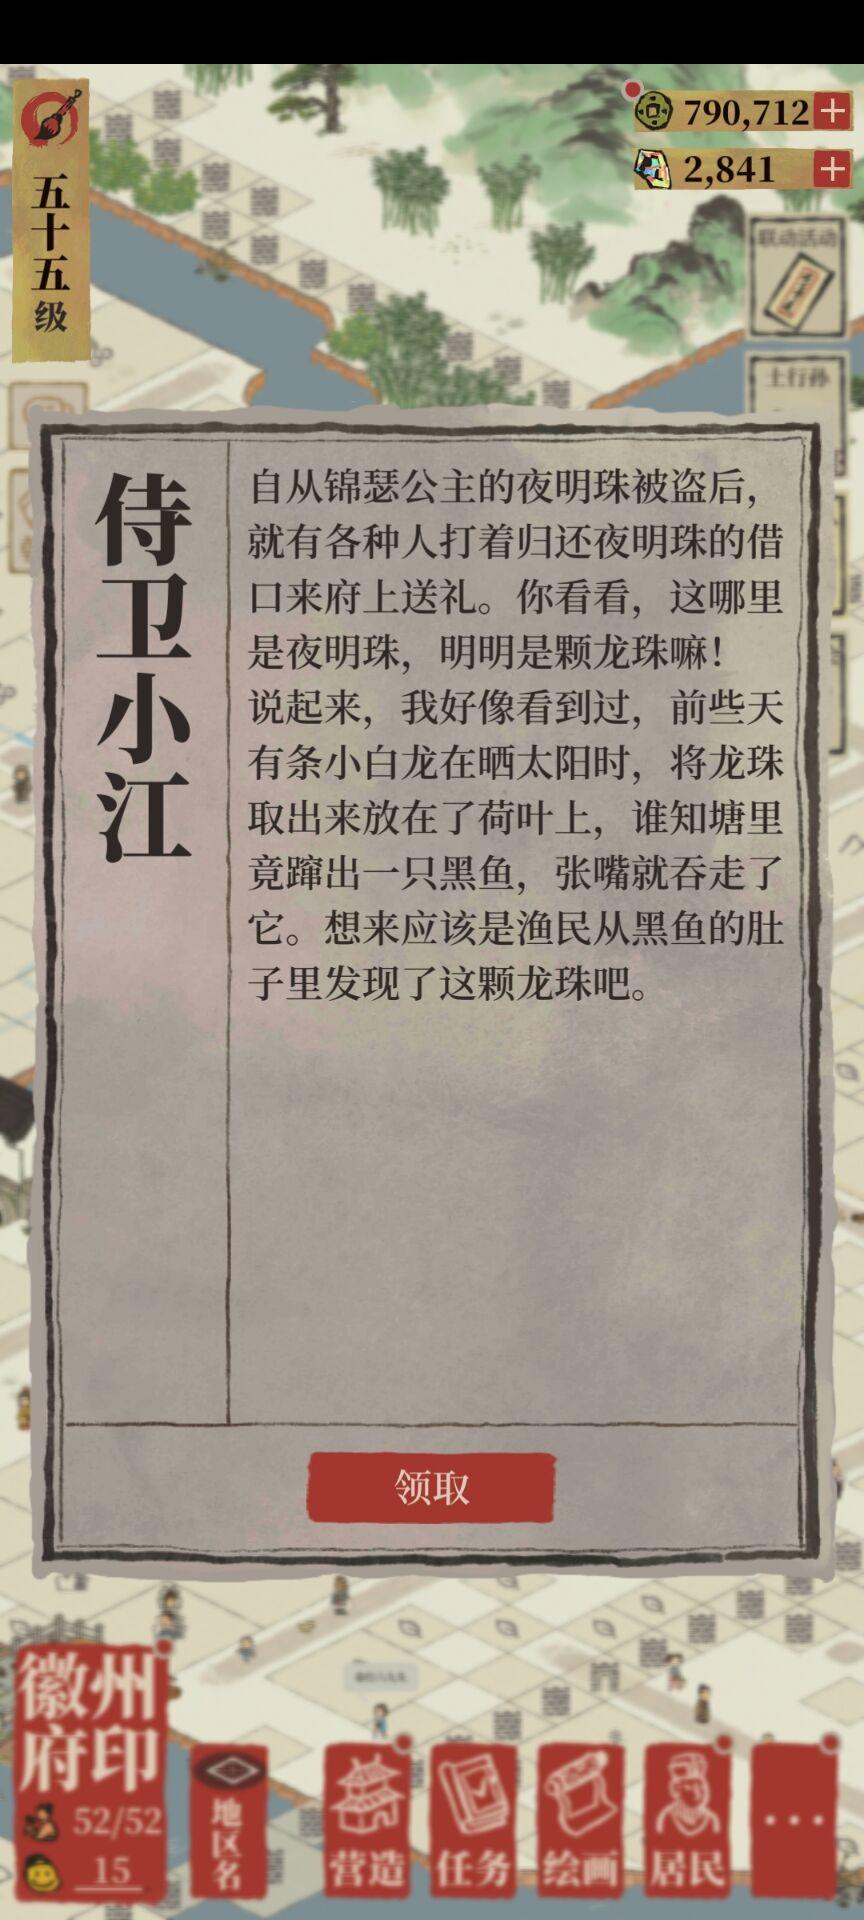 五十五级
790,712
2,841
联动活动
土行孙
侍卫小江
自从锦瑟公主的夜明珠被盗后，
就有各种人打着归还夜明珠的借
口来府上送礼。你看看，这哪里
是夜明珠，明明是颗龙珠嘛！
说起来，我好像看到过，前些天
有条小白龙在晒太阳时，将龙珠
取出来放在了荷叶上，谁知塘里
竟蹿出一只黑鱼，张嘴就吞走了
它。想来应该是渔民从黑鱼的肚
子里发现了这颗龙珠吧。
领取
徽州
府印
52/52
15
地区名
营造
任务
绘画
居民